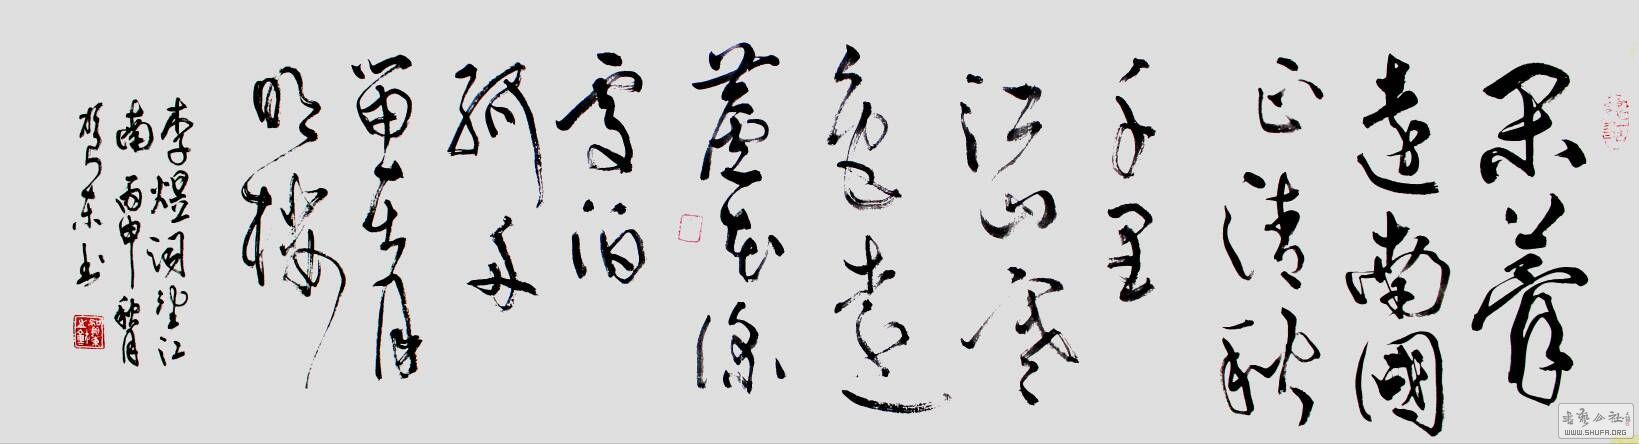 閒夢
遠南國
正清秋
千里
江山寒
色遠
蘆花深
處泊
孤舟
笛在月
明樓
李煜詞望江
南丙申秋月
东书
书艺公社
WWW.SHUFA.ORG